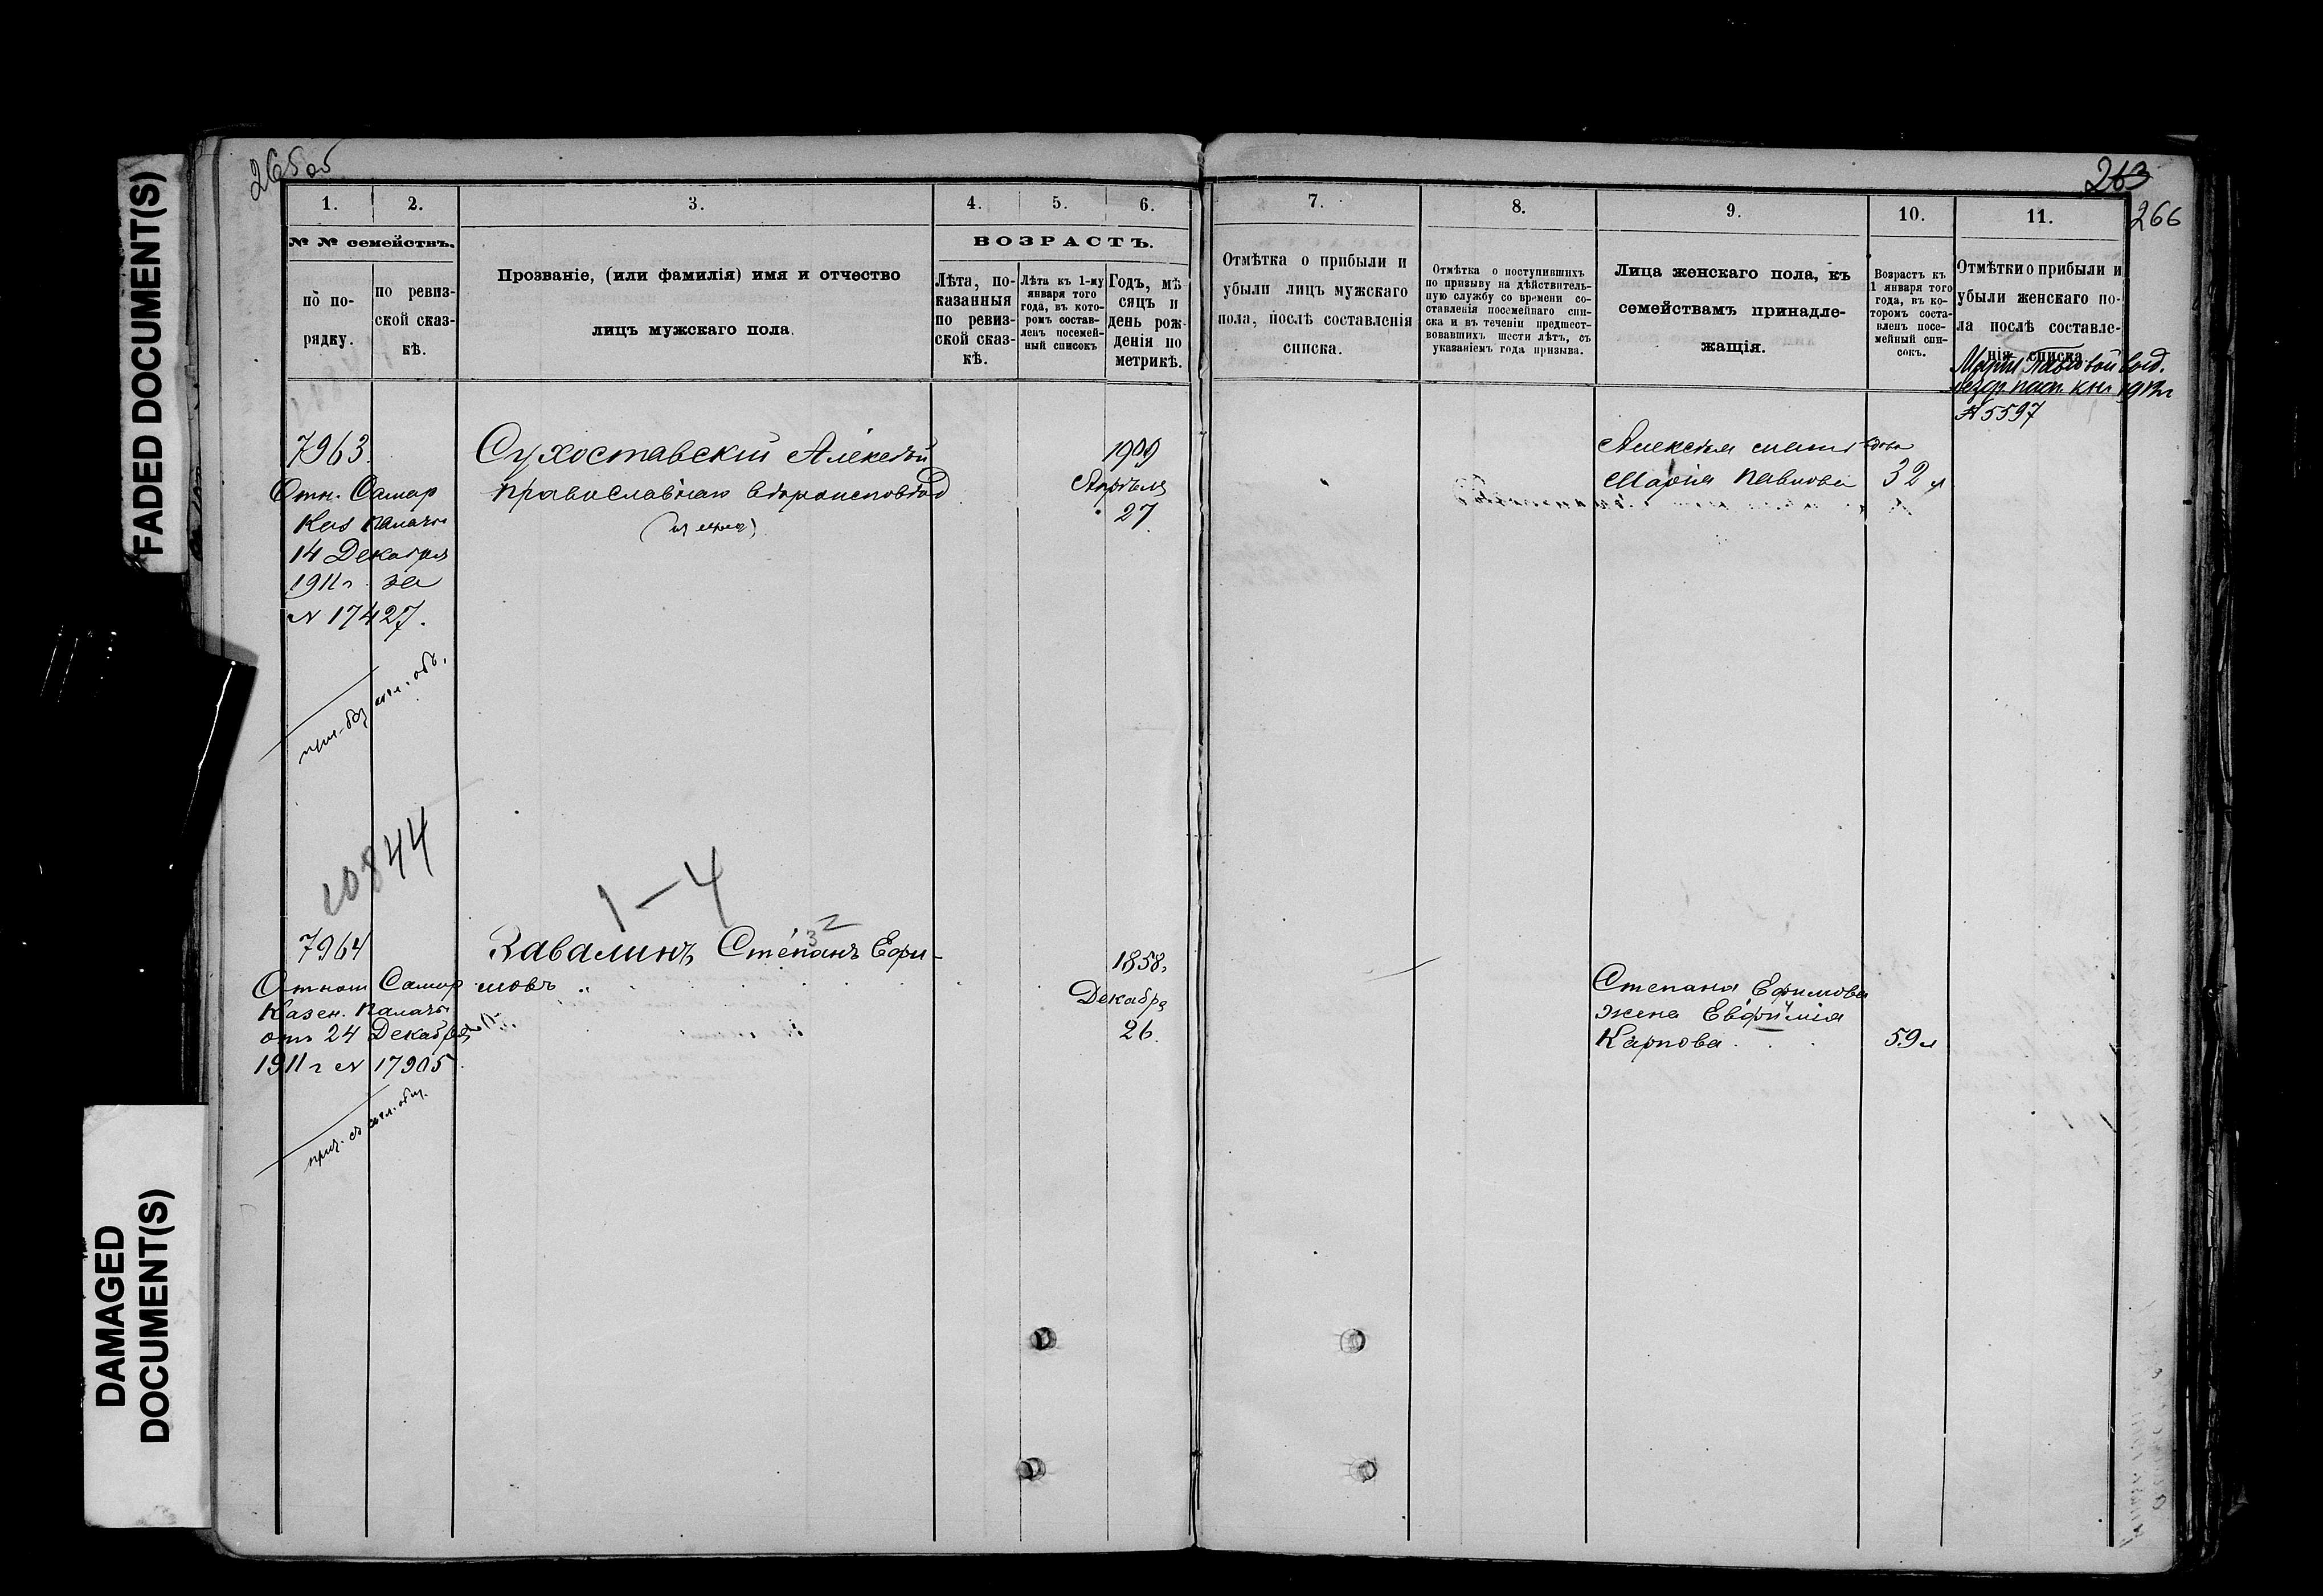 FADED DOCUMENT(S)
DAMAGED
DOCUMENT(S)
265 об
1. 2. 3. 4. 5. 6.
№ № семействъ.
ВОЗРАСТЪ.
по по-
рядку.
по ревиз-
ской сказ-
кѣ.
Прозваніе, (или фамилія) имя и отчество
лицъ мужскаго пола.
Лѣта, по-
казанныя
по ревиз-
ской сказ-
кѣ.
Лѣта къ 1-му
января того
года, въ кото-
ромъ состав-
ленъ посемей-
ный списокъ
Годъ, мѣ
сяцъ и
день рож-
денія по
метрикѣ.
7963.
Отн. Самар
Каз палаты
14 Декабря
1911 г за
№ 17427.
Сухоставскій Алексѣй
православнаго вѣроисповѣд
1909
Апрѣля
27
10844
1–4
7964
Отнош Самар
Казен. Палаты
отъ 24 Декабря
1911 г № 17905
Завалинъ Степанъ Ефи-
мовъ
32
1858.
Декабря
26.
263
266
7. 8. 9. 10. 11.
Отмѣтка о прибыли и
убыли лицъ мужскаго
пола, послѣ составленія
списка.
Отмѣтка о поступившихъ
по призыву на дѣйствитель-
ную службу со времени со-
ставленія посемейнаго спи-
ска и въ теченіи предшест-
вовавшихъ шести лѣтъ, съ
указаніемъ года призыва.
Лица женскаго пола, къ
семействамъ принадле-
жащія.
Возрастъ къ
1 января того
года, въ ко-
торомъ соста-
вленъ посе-
мейный спи-
сокъ.
Отмѣтки о прибыли и
убыли женскаго по-
ла послѣ составле-
нія списка.
Маріи Павловой
1912 г
№ 5597
Алексѣя мать вдова
Марія Павлова 32 л
Степана Ефимова
жена Евфимія
Карпова 59 л